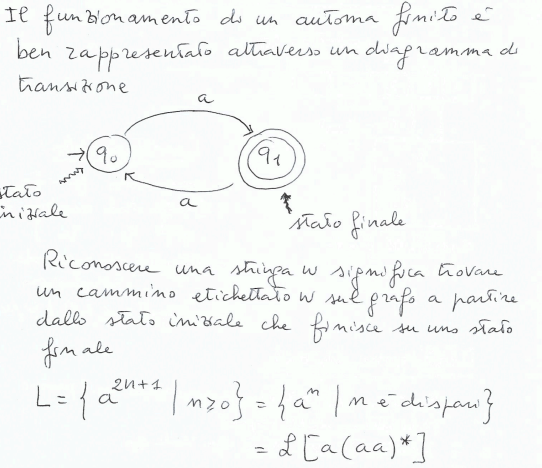 Il funzionamento di un automa finito è
ben rappresentato attraverso un diagramma di
transizione
a
q0
q1
a
stato
iniziale
stato finale
Riconoscere una stringa w significa trovare
un cammino etichettato w sul grafo a partire
dallo stato iniziale che finisce su uno stato
finale
L = { a^{2n+1} | n ≥ 0 } = { a^n | n è dispari }
= ℒ [ a(aa)* ]